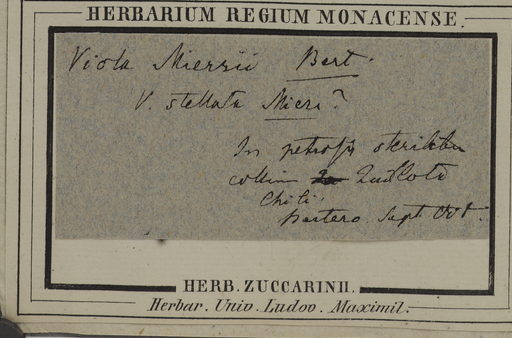 HERBARIUM REGIUM MONACENSE.
Viola Miersii Bert.
V. stellata Miers?
In petrosis sterilibus
collium Quillota
Chili.
Bertero. Sept. Oct.
HERB. ZUCCARINII.
Herbar. Univ. Ludov. Maximil.